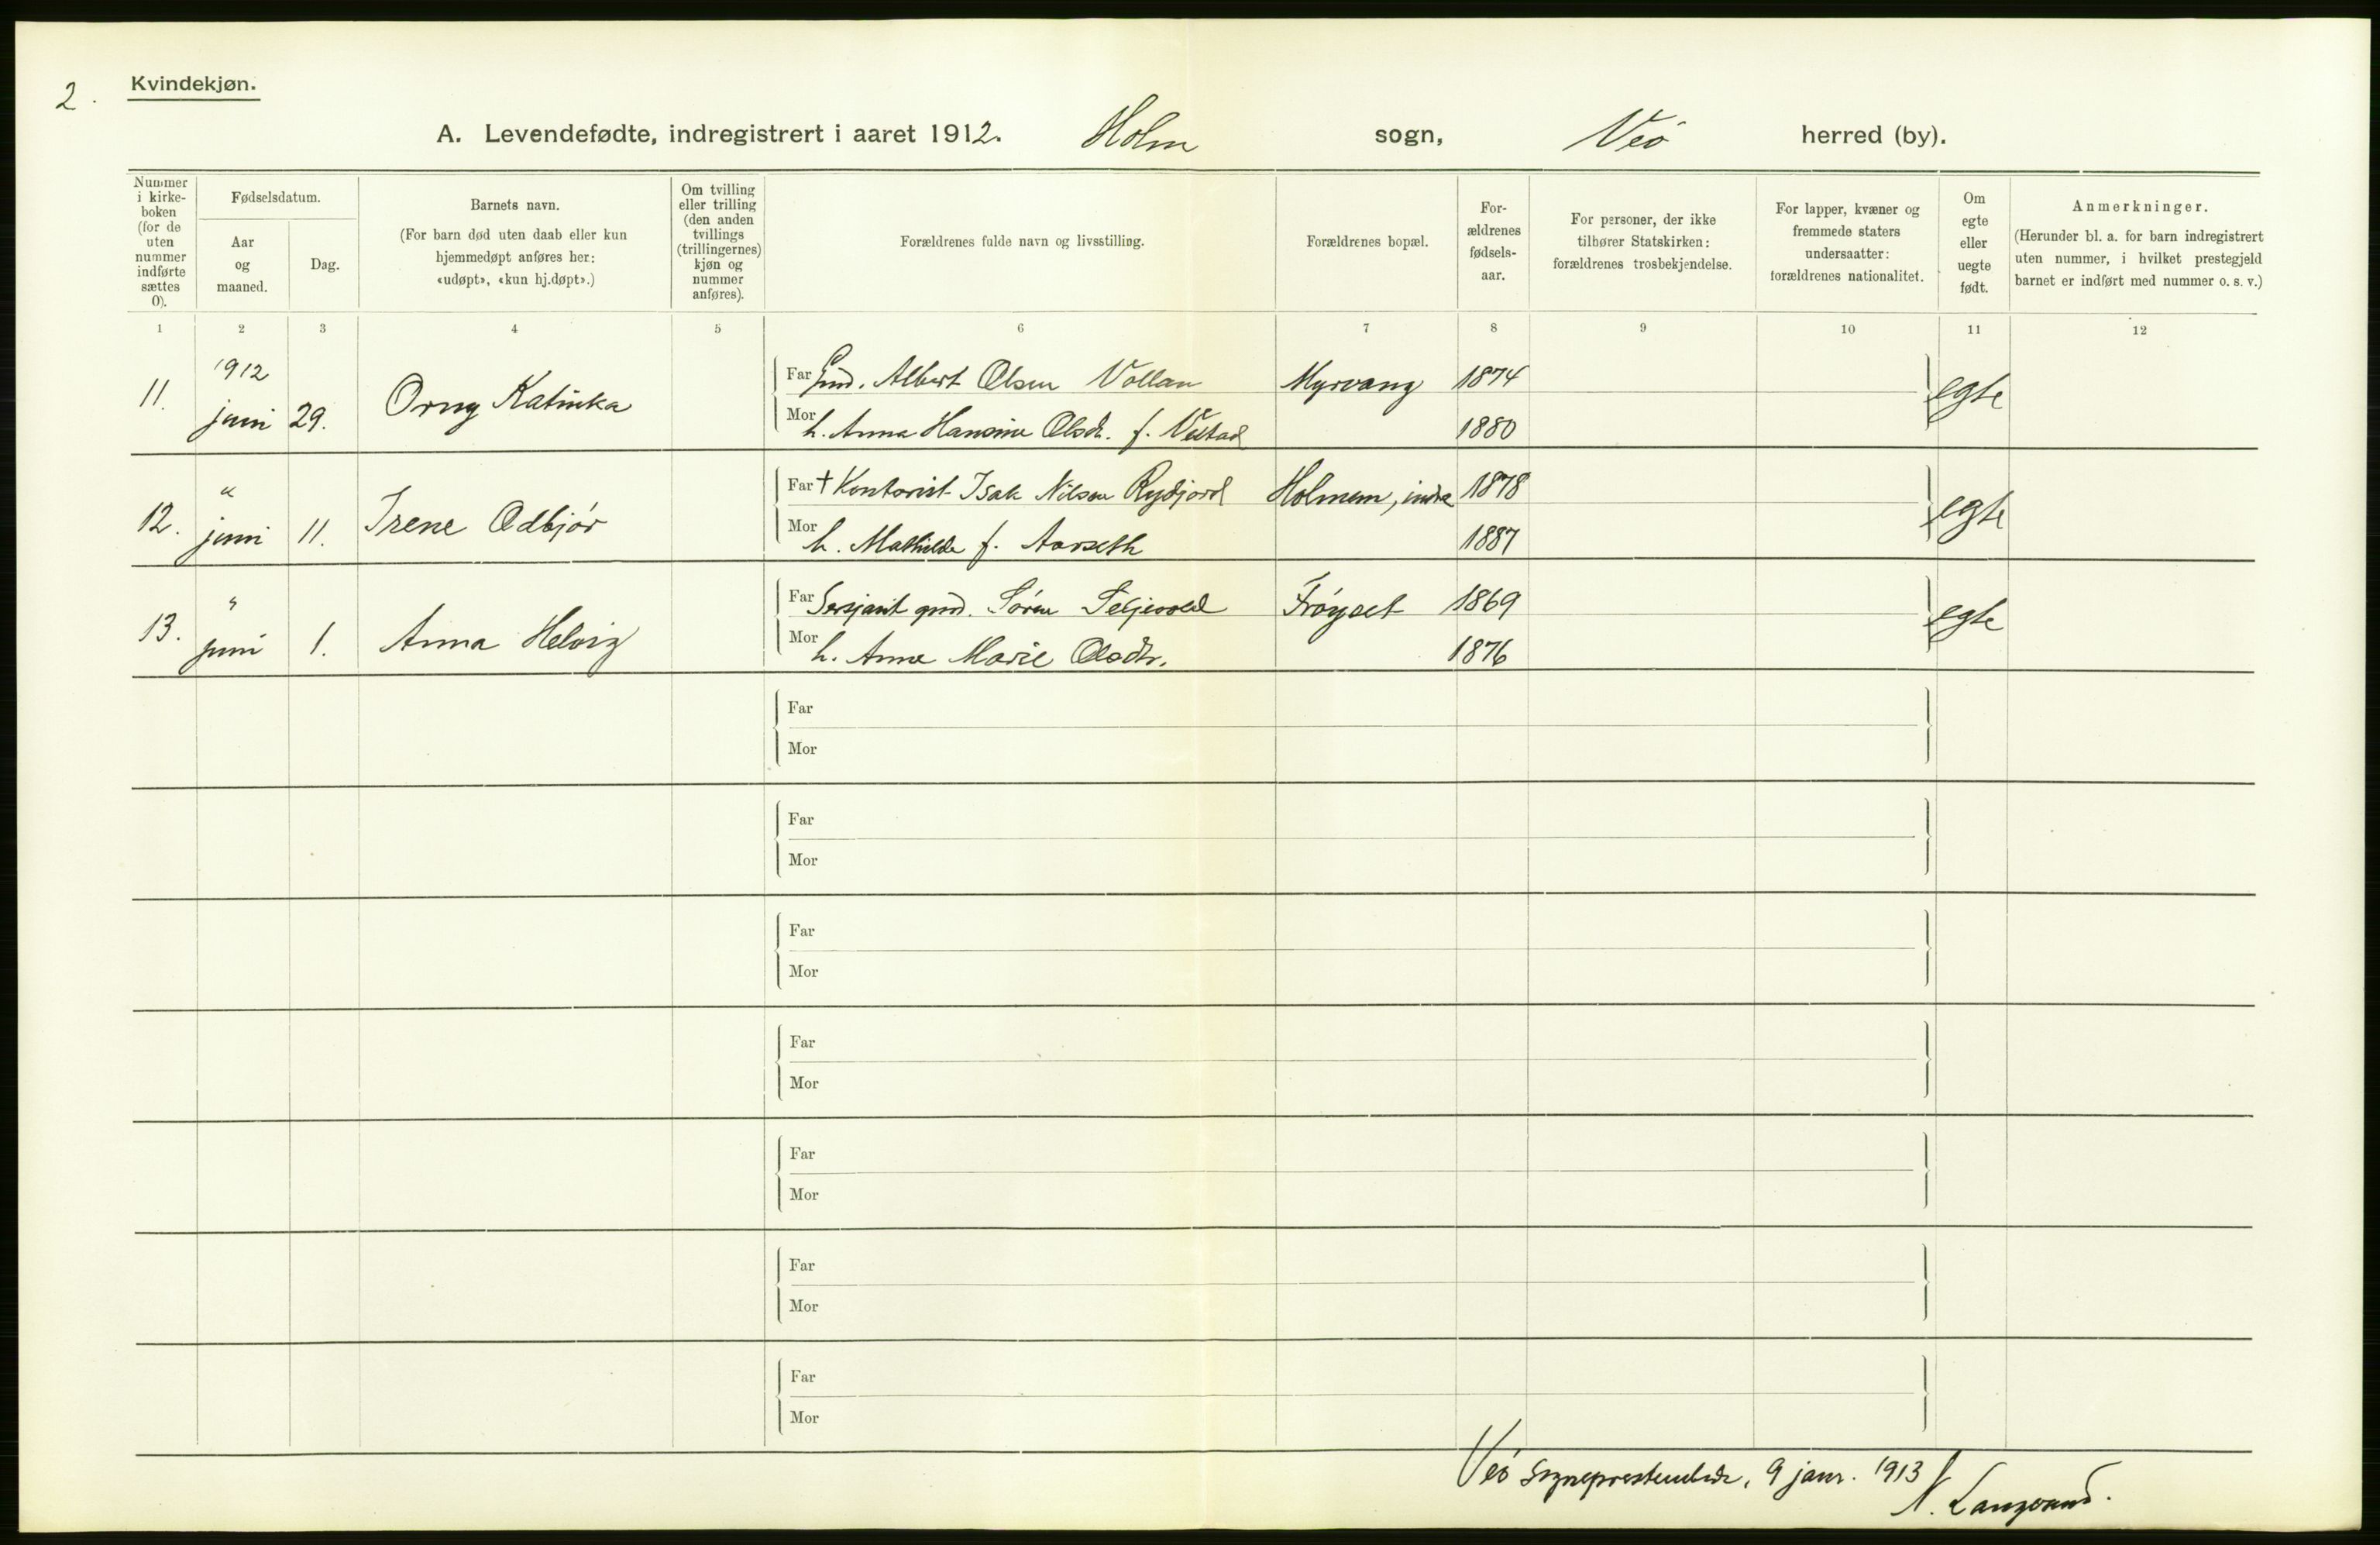 2.
Kvindekjøn.
A. Levendefødte, indregistrert i aaret 1912. Holm sogn, Veö herred (by).
Nummer i kirke-boken (for de uten nummer indførte sættes 0).
Fødselsdatum.
Aar og maaned.
Dag.
Barnets navn.
(For barn død uten daab eller kun
hjemmedøpt anføres her:
«udøpt», «kun hj.døpt».)
Om tvilling
eller trilling
(den anden
tvillings
(trillingernes)
kjøn og
nummer
anføres).
Forældrenes fulde navn og livsstilling.
Forældrenes bopæl.
For-
ældrenes
fødsels-
aar.
For personer, der ikke
tilhører Statskirken:
forældrenes trosbekjendelse.
For lapper, kvæner og
fremmede staters
undersaatter:
forældrenes nationalitet.
Om
egte
eller
uegte
født.
Anmerkninger.
(Herunder bl. a. for barn indregistrert
uten nummer, i hvilket prestegjeld
barnet er indført med nummer o. s. v.)
1 2 3 4 5 6 7 8 9 10 11 12
1912
11. juni 29. Orny Katinka
Far Gmd. Albert Olsen Vollan Myrvang 1874 egte
Mor h. Anna Hansine Olsdr. f. 1880
"
12. juni 11. Irene Odbjør
Far † Kontorist Isak Nilsen Rydjord Holmem, indre 1878 egte
Mor h. Mathilde f. Aarseth 1887
"
13. juni 1. Anna Helvig
Far Sersjant gmd. Søren Seljevold Frøyset 1869 egte
Mor h. Anne Marie Olsdtr. 1876
Far
Mor
Far
Mor
Far
Mor
Far
Mor
Far
Mor
Far
Mor
Far
Mor
Veö 9 janr. 1913
N. Langvand.